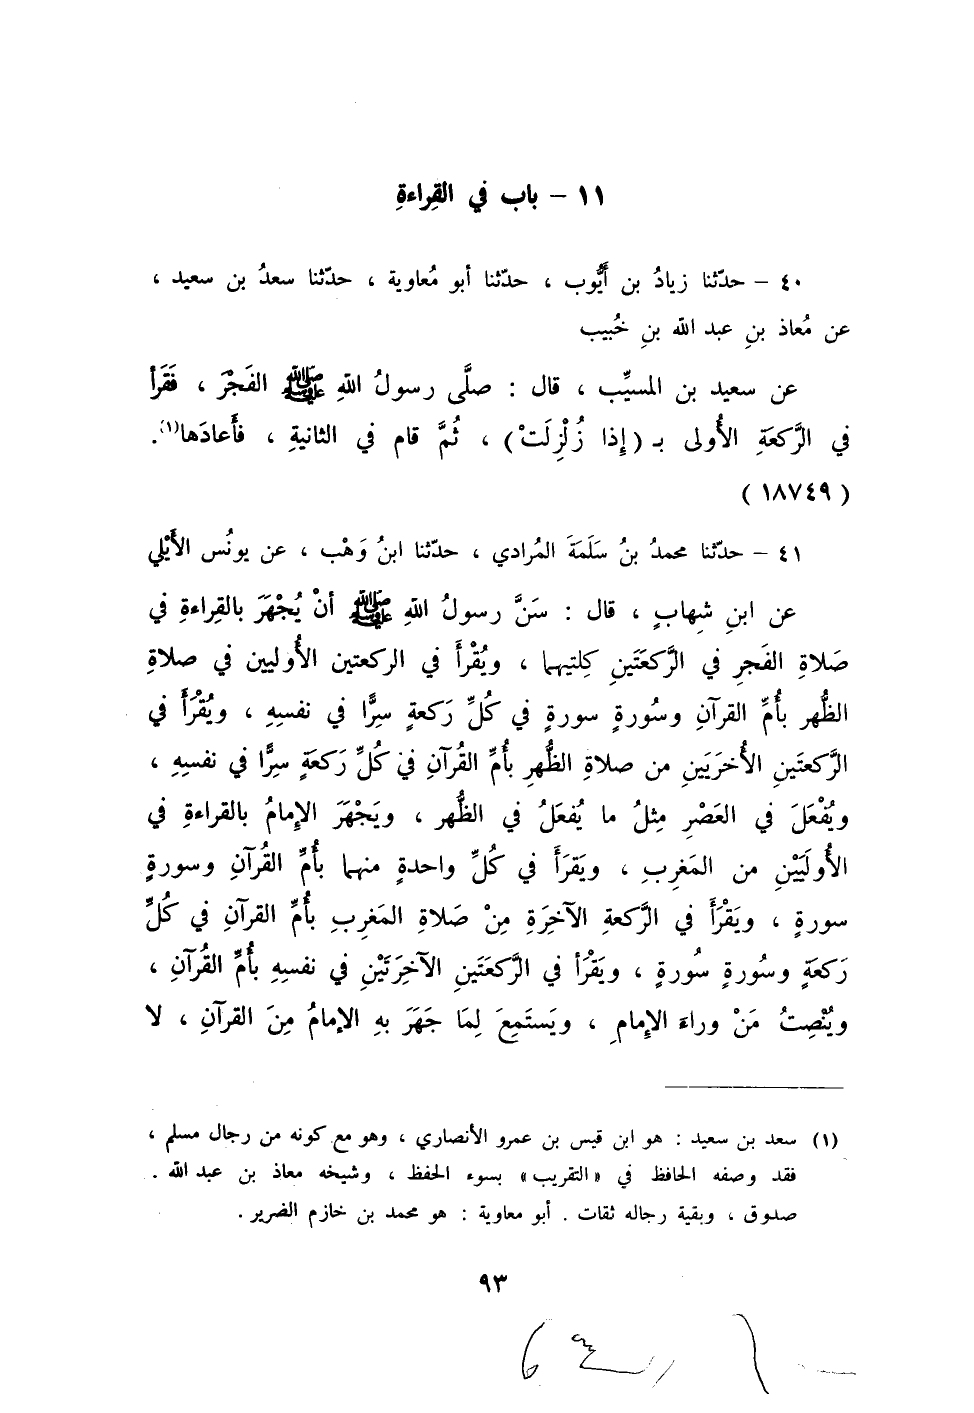 ١١ - باب في القِراءةِ
٤٠ - حدّثنا زيادُ بن أَيُّوب ، حدّثنا أبو مُعاوية ، حدّثنا سعدُ بن سعيد ،
عن مُعاذ بنِ عبد الله بنِ خُبيب
عن سعيد بن المسيِّب ، قال : صلَّى رسولُ اللهِ ﷺ الفَجْرَ ، فَقَرأ
في الرَّكعَةِ الأُولى بـ (إِذا زُلْزِلَتْ) ، ثُمَّ قام في الثانيةِ ، فأَعادَها(١).
(١٨٧٤٩)
٤١ - حدّثنا محمدُ بنُ سَلَمَةَ المُرادي ، حدّثنا ابنُ وَهْب ، عن يونُس الأَيْلي
عن ابنِ شِهابٍ ، قال : سَنَّ رسولُ اللهِ ﷺ أنْ يُجْهَرَ بالقِراءةِ في
صَلاةِ الفَجرِ في الرَّكعَتَينِ كِلتيهما ، ويُقْرأَ في الركعتين الأُوليين في صلاةِ
الظُّهر بأُمِّ القرآنِ وسُورةٍ سورةٍ في كُلِّ رَكعةٍ سِرًّا في نفسِهِ ، ويُقْرَأَ في
الرَّكعتَينِ الأُخرَيَينِ من صلاةِ الظُّهرِ بأُمِّ القُرآنِ في كُلِّ رَكعَةٍ سِرًّا في نفسِهِ ،
ويُفْعَلَ في العَصْرِ مِثلُ ما يُفعَلُ في الظُّهر ، ويَجْهَرَ الإِمامُ بالقراءةِ في
الأُولَيَيْنِ من المَغرِبِ ، ويَقرَأَ في كُلِّ واحدةٍ منهما بأُمِّ القُرآنِ وسورةٍ
سورةٍ ، ويَقْرَأَ في الرَّكعةِ الآخِرَةِ مِنْ صَلاةِ المَغربِ بأُمِّ القرآنِ في كُلِّ
رَكعَةٍ وسُورةٍ سُورةٍ ، ويَقْرأ في الرَّكعَتَينِ الآخِرَتَيْنِ في نفسِهِ بأُمِّ القُرآنِ ،
ويُنْصِتُ مَنْ وراءَ الإِمامِ ، ويَستَمِعَ لِمَا جَهَرَ بهِ الإمامُ مِنَ القرآنِ ، لا
(١) سعد بن سعيد : هو ابن قيس بن عمرو الأنصاري ، وهو مع كونه من رجال مسلم ،
فقد وصفه الحافظ في «التقريب» بسوء الحفظ ، وشيخه معاذ بن عبد الله .
صدوق ، وبقية رجاله ثقات . أبو معاوية : هو محمد بن خازم الضرير .
٩٣